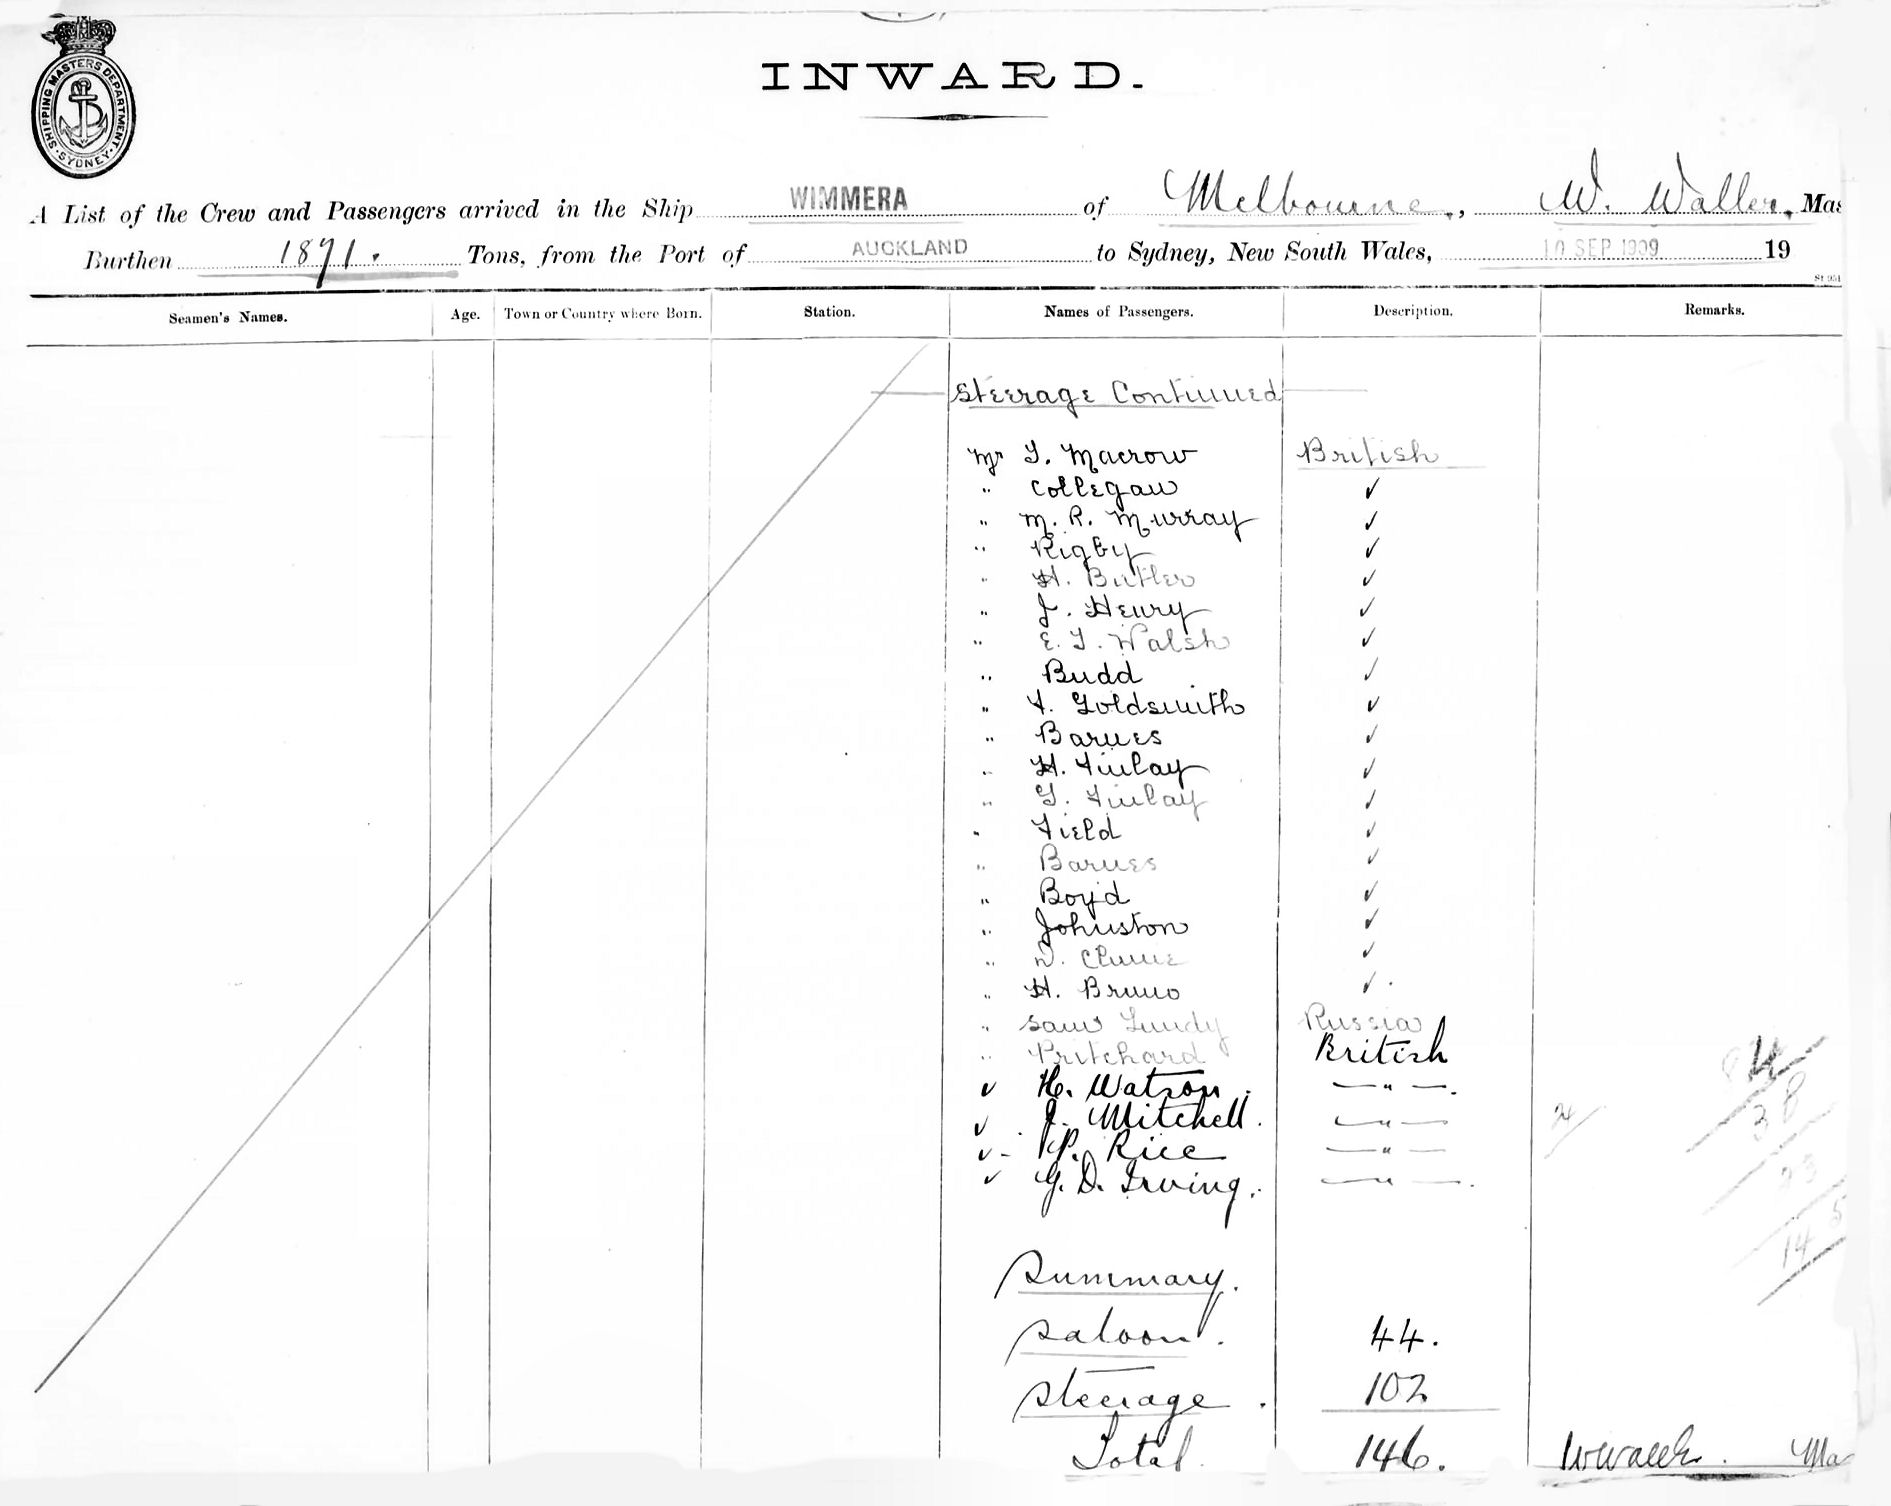 SHIPPING MASTERS DEPARTMENT · SYDNEY ·
INWARD.
A List of the Crew and Passengers arrived in the Ship WIMMERA of Melbourne, W. Waller, Mas
Burthen 1891. Tons, from the Port of AUCKLAND to Sydney, New South Wales, 10 SEP 1909 19
Seamen's Names. Age. Town or Country where Born. Station. Names of Passengers. Description. Remarks.
Steerage Continued
Mr T. Macrow British
" Collegan ✓
" M. R. Murray ✓
" Rigby ✓
" H. Butler ✓
" J. Henry ✓
" E. T. Walsh ✓
" Budd ✓
" F. Goldsmith ✓
" Barnes ✓
" H. Finlay ✓
" G. Finlay ✓
" Field ✓
" Barnes ✓
" Boyd ✓
" Johnston ✓
" D. Clune ✓
" H. Bruno ✓.
" Sam Lundy Russia
" Pritchard British
✓ H. Watson. — " —.
✓ J. Mitchell. — " —
24
38
✓ - P. Rice — " —
✓ G. D. Irving. — " —.
23
14 5
Summary.
Saloon. 44.
Steerage. 102
Total 146. Ma